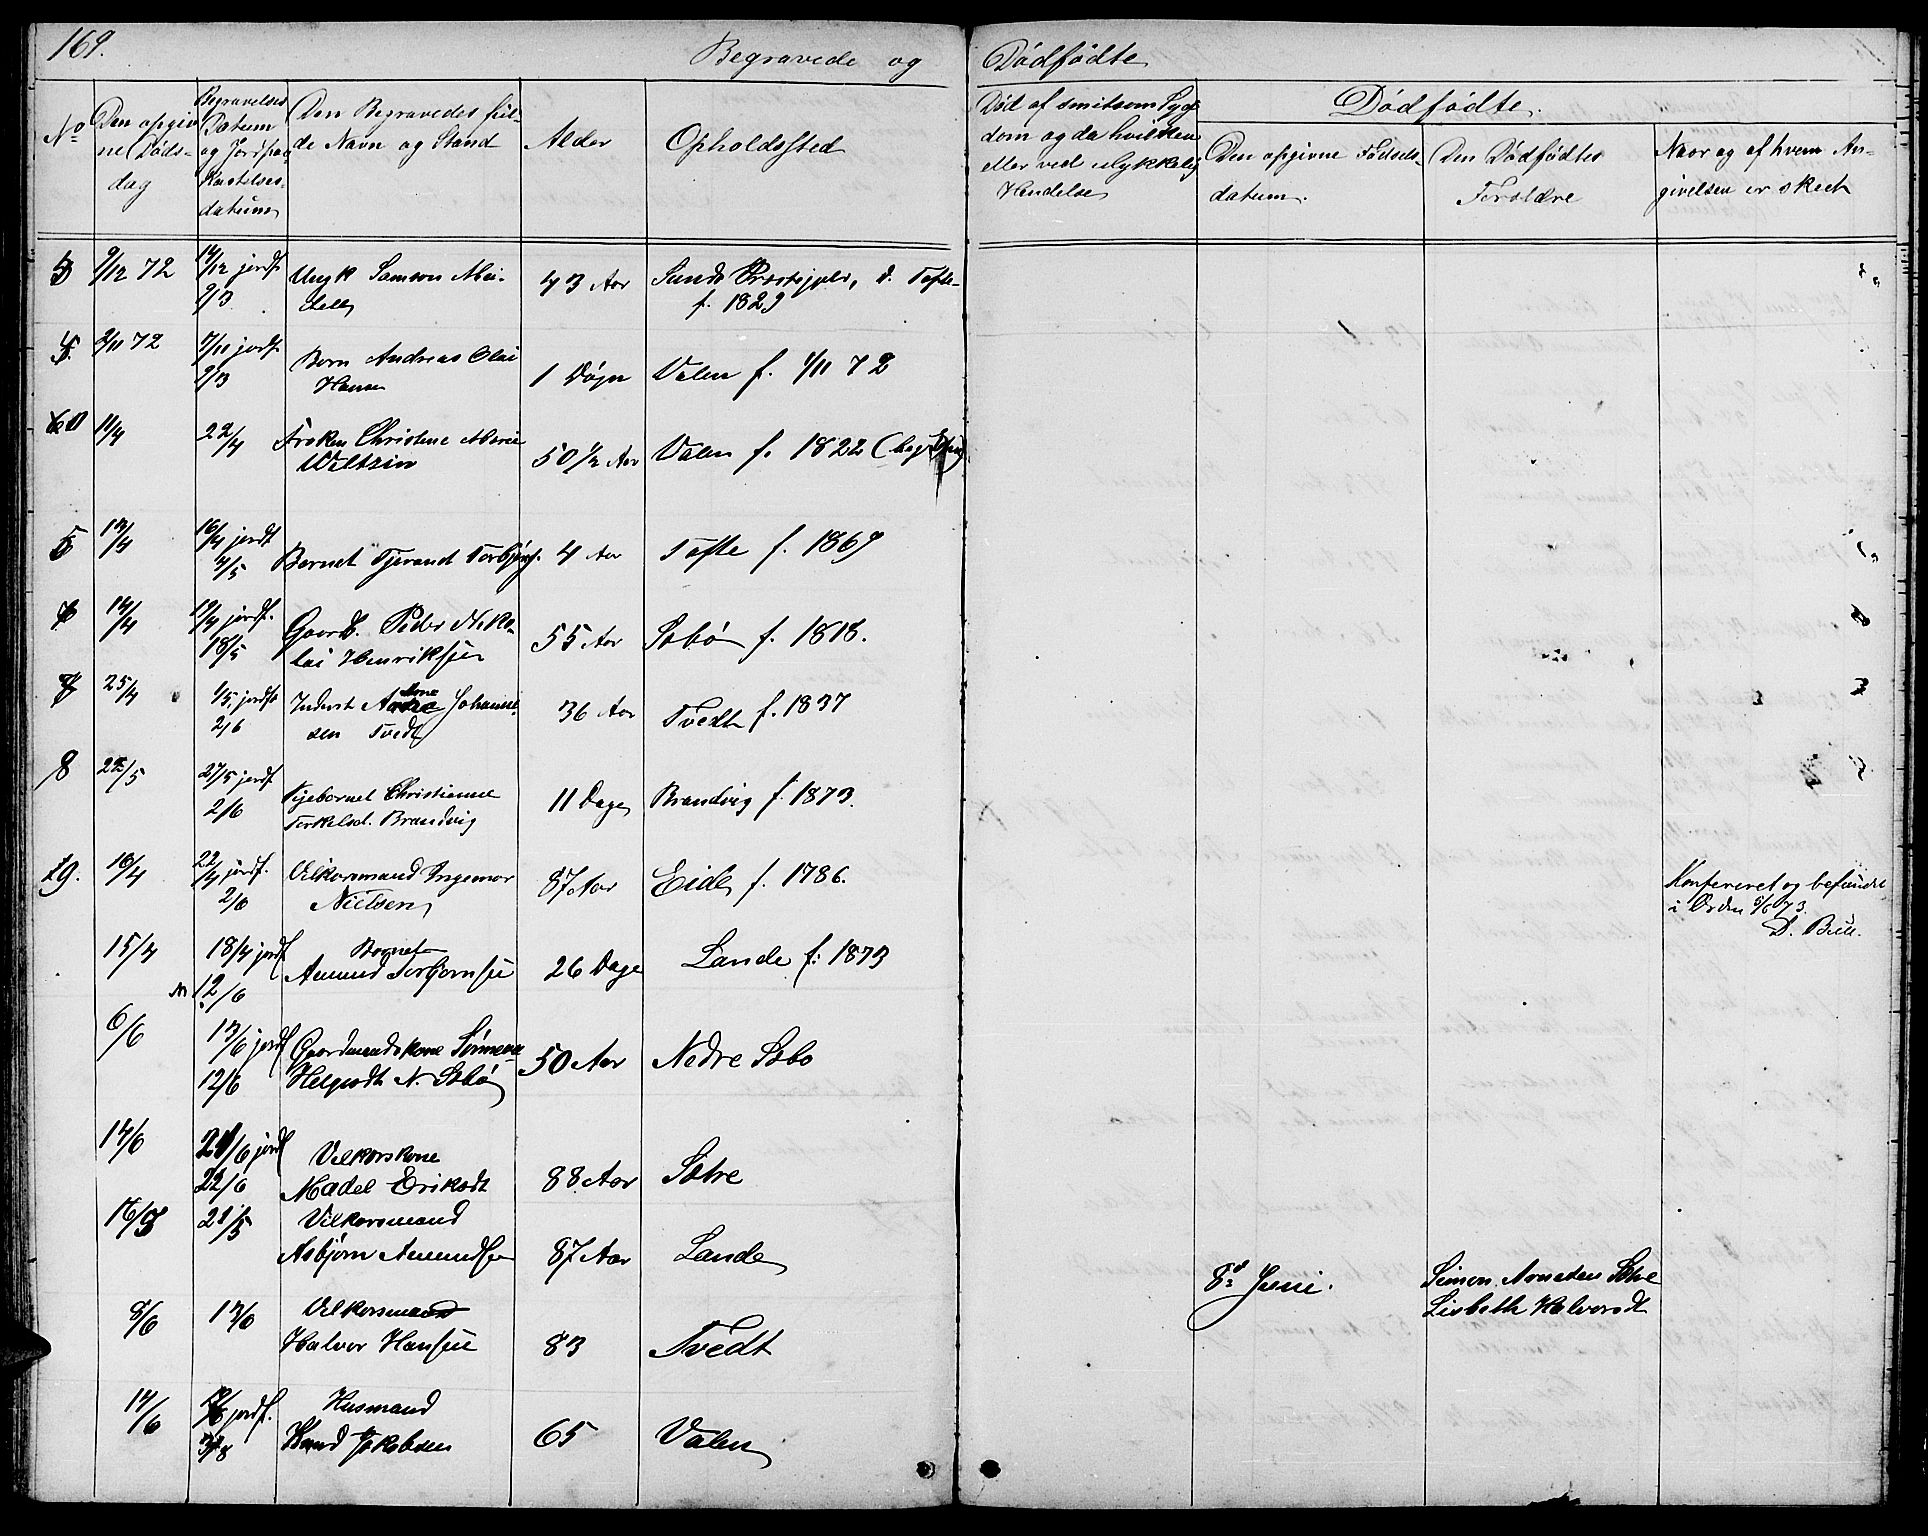 169.
Begravede og Dødfødte
No
Den opgiv
ne Døds-
dag
Begravelses
Datum
og Jordpaa
Kastelses-
datum
Den Begravedes ful-
de Navn og Stand
Alder
Opholdssted
Død af smitsom Syg-
dom og da hvilken
eller ved ulykkelig
Hendelse
Dødfødte.
Den opgivne Fødsels-
datum.
Den Dødfødtes
Forældre
Naar og af hvem An-
givelsen er skeet
9/12 72
14/12 jordf.
2/3
Ungk Samson
43 Aar
Sunds Præstegjeld, d. Tofte
f. 1829
2/11 72
7/11 jordf.
2/3
Barn Andreas Olai
Hansen
1 Døgn
Valen f. 1/11 72
11/4
22/4
Frøken Christine Marie
Weltzin
50 1/2 Aar
Valen f. 1822
5
13/4
16/4 jordf
4/5
Barnet Tjerand Torbjørns.
4 Aar
Tofte f. 1869
14/4
19/4 jordf.
18/5
Gaardb. Peder Niko-
lai Henriksen
55 Aar
Sæbø f. 1818.
25/4
1/5. jordf
2/6
Inderst Johanne-
sen Tvedt
36 Aar
Tvedt f. 1837
8
22/5
27/5 jordf
2/6
Pigebarnet Christianne
Terkelsd. Brandvig
11 Dage
Brandvig f. 1873.
9.
16/4
22/4 jordf.
2/6
Vilkorsmand Ingemor
Nielsen
87 Aar
Eide f. 1786.
Konfereret og befundet
i Orden 5/6 73.
D. Bull.
15/4
18/4 jordf
12/6
Barnet
Amund Torbjørnsen
26 Dage
Lande f: 1873
6/6
13/6 jordf
12/6
Gaardmandskone Sønneva
Helgesdt N. Sæbø
50 Aar
Nedre Sæbo
14/6
21/6 jordf
22/6
Vilkorskone
Madel Eriksdt
88 Aar
Sætre
16/5
21/5
Vilkorsmand
Asbjørn Amundsen
87 Aar
Lande
8d Juni.
Simon Arnesen Sætre
Lisbeth Halvorsdt
8/6
13/6
Vilkorsmand
Halvor Hansen
83
Tvedt
14/6
jordf.
Husmand
Knud Jakobsen
65
Valen